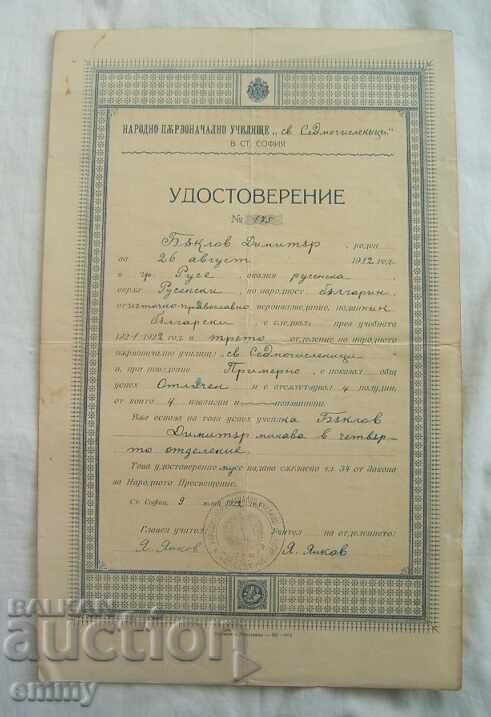 НАРОДНО ПЪРВОНАЧАЛНО УЧИЛИЩЕ „св Седмочисленици"
В СТ. СОФИЯ
УДОСТОВЕРЕНИЕ
№ 175
Бъклов Димитър, роден
на 26 август 1912 год.
в гр. Русе околия русенска
окръг Русенски, по народност българин
източно-православно вероизповедание, поданик
български, е следвал през учебната
1921/1922 год в трето отделение на народното
първоначално училище „св Седмочисленици"
и, при поведение Примерно, е показал общ
успех Отличен и е отсъствувал 4 полудни,
от които 4 извинени и неизвинени.
Въз основа на този успех ученика Бъклов
Димитър минава в четвър-
то отделение.
Това удостоверение му се издава съгласно чл. 34 от Закона
за Народното Просвещение.
Ст. София, 9 юлий 1922 год.
Главен учител: Учител на отделението:
Я. Янков Я. Янков
BALKAN
auction
emmy